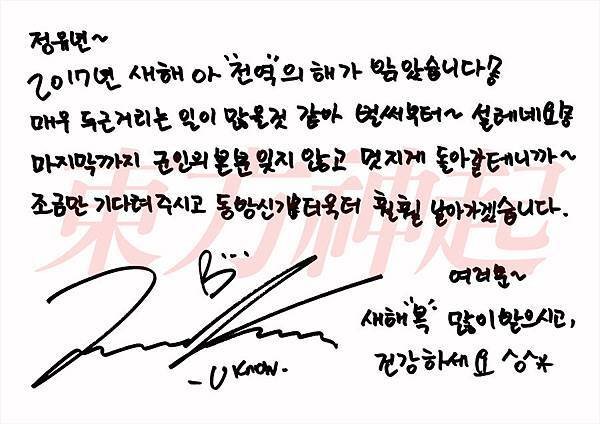 정유년~
2017년 새해 아 "전역"의 해가 밝았습니다!
매우 두근거리는 일이 많을것 같아 벌써부터~ 설레네요!
마지막까지 군인의 본분 잊지 않고 멋지게 돌아갈테니까~
조금만 기다려주시고 동방신기 더욱더 훨훨 날아가겠습니다.
東方神起
B...
여러분~
새해 "복" 많이 받으시고,
건강하세요 ^o^*
- U KNOW -